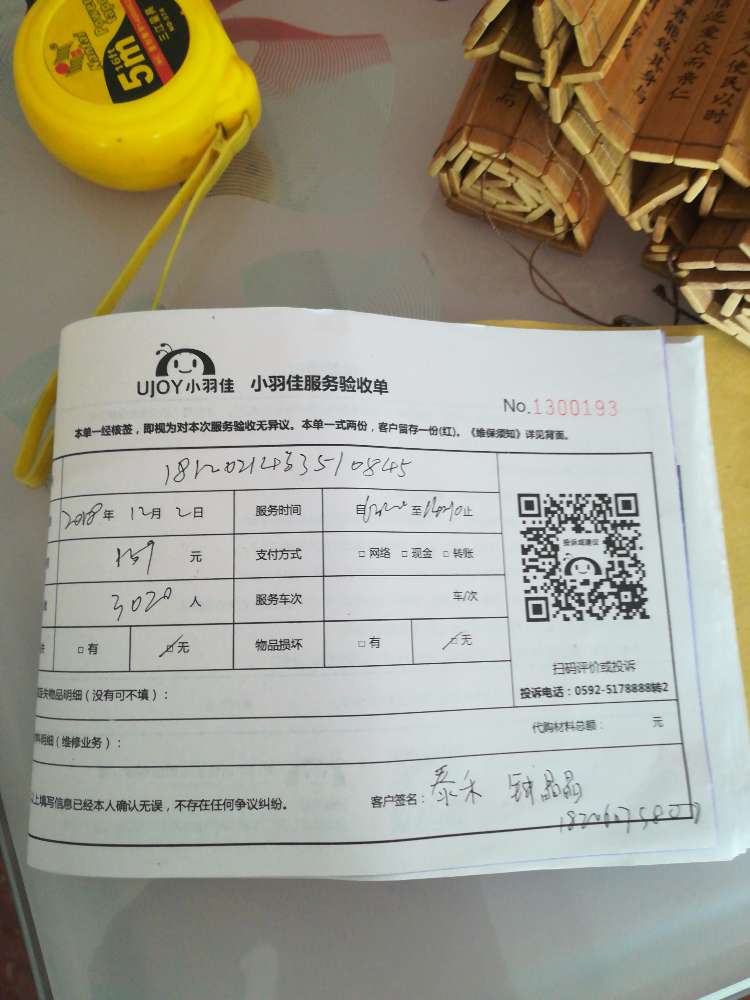 5m
16ft
三江量具
UJOY小羽佳 小羽佳服务验收单
No.1300193
本单一经核签，即视为对本次服务验收无异议。本单一式两份，客户留存一份(红)。《维保须知》详见背面。
2018年 12月 2日 服务时间 自 至 止
159 元 支付方式 □ 网络 □ 现金 □ 转账
3020 人 服务车次 车/次
□ 有 □ 无 物品损坏 □ 有 □ 无
投诉或建议
扫码评价或投诉
投诉电话：0592-5178888转2
失物品明细（没有可不填）：
代购材料总额： 元
明细（维修业务）：
上填写信息已经本人确认无误，不存在任何争议纠纷。 客户签名：泰禾 钟晶晶
使民以时
而亲仁
能致其身与